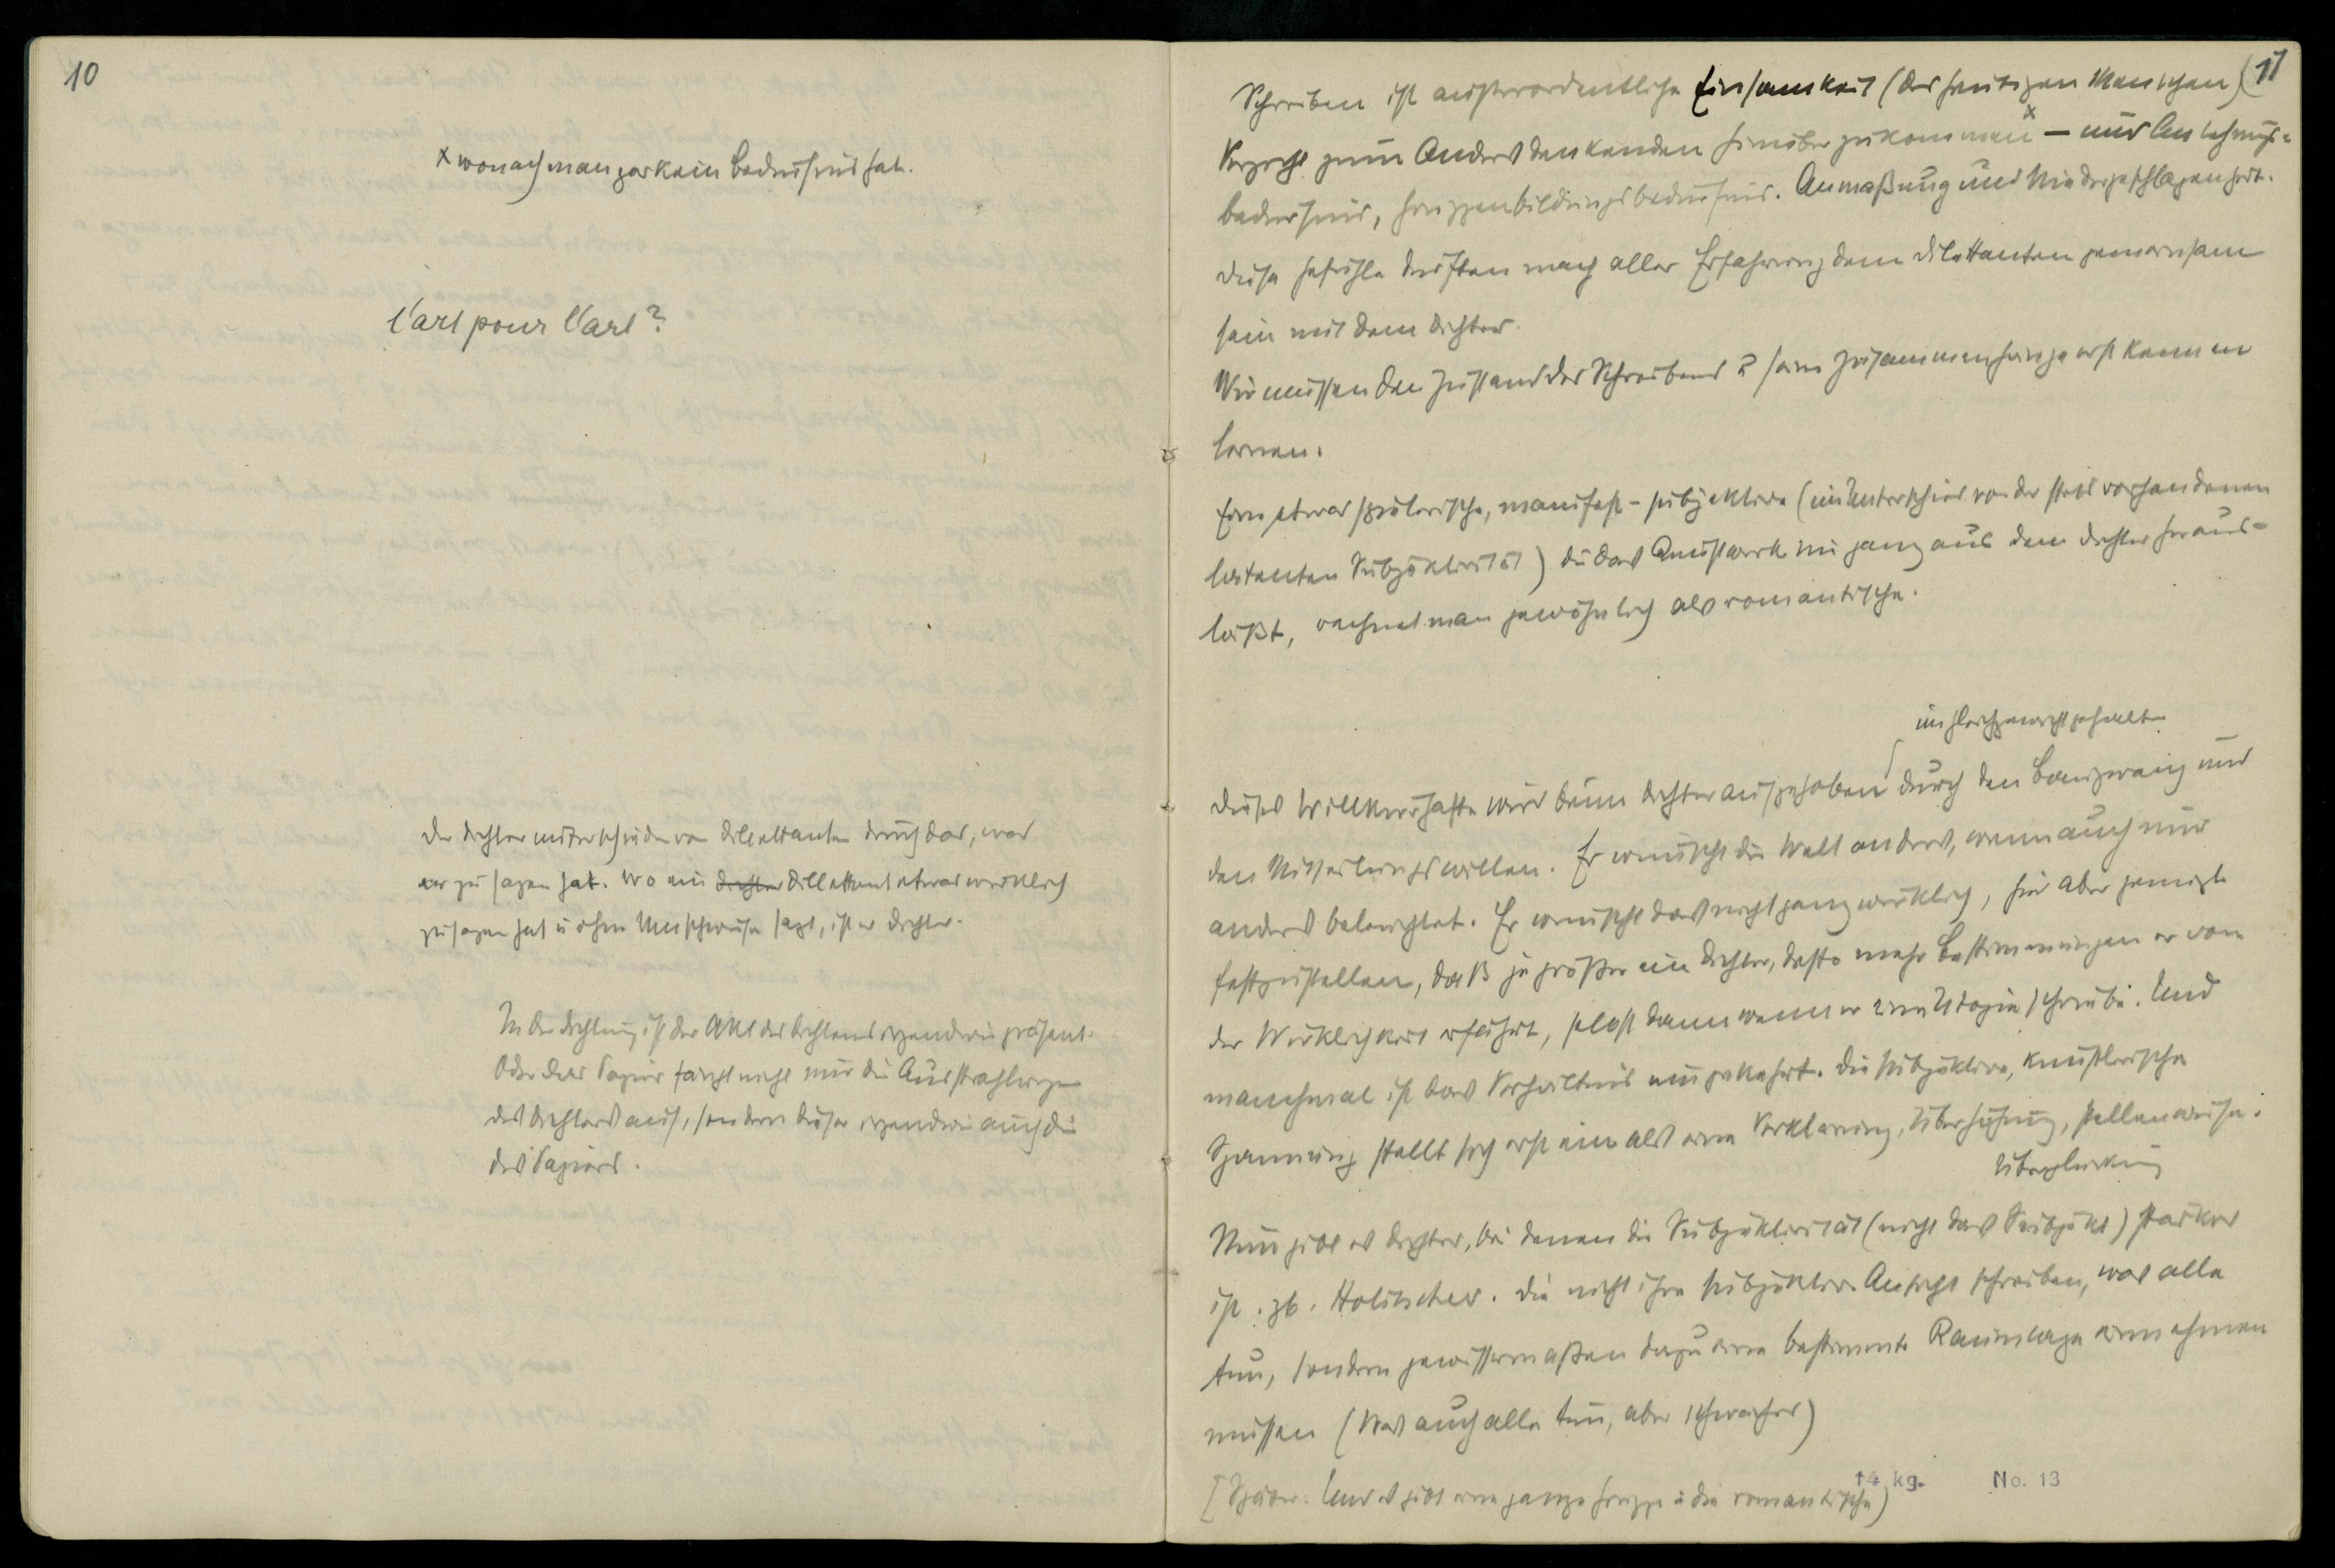 10
x wonach man gar kein Bedürfnis hat.
l'art pour l'art?
Der Dichter unterscheide vom Dilettanten durch das, was
er zu sagen hat. Wo ein Dichter Dilettant etwas wirklich
zu sagen hat u ohne Umschweife sagt, ist er Dichter.
In der Dichtung ist der Akt des Dichtens irgendwie präsent.
Oder das Papier fängt nicht nur die Ausstrahlungen
des Dichters auf, sondern dieser irgendwie auch die
des Papiers.
11
Schreiben ist außerordentliche Einsamkeit (des heutigen Menschen)
Verzicht zum Andersdenkenden hinüberzukommen x – und Anlehnungs=
bedürfnis, Gruppenbildungsbedürfnis. Anmaßung und Niedergeschlagenheit.
Diese Gefühle dürften nach aller Erfahrung dem Dilettanten gemeinsam
sein mit dem Dichter.
Wir müssen den Zustand des Schreibens u seine Zusammenhänge erst kennen
lernen.
Eine etwas spielerische, manifest-subjektive (im Unterschied von der stets vorhandenen
latenten Subjektivität) die das Kunstwerk nie ganz aus dem Dichter heraus=
läßt, rechnet man gewöhnlich als romantische.
im Gleichgewicht gehalten
Dieses Willkürhafte wird beim Dichter aufgehoben durch den Bauzwang und
den Mitteilungswillen. Er wünscht die Welt anders, wenn auch nur
anders beleuchtet. Er wünscht das nicht ganz wirklich, hier aber genügt
festzustellen, daß je größer ein Dichter, desto mehr Bestimmungen er von
der Wirklichkeit erfährt, selbst dann wenn er eine Utopie schreibe. Und
manchmal ist das Verhältnis umgekehrt. Die subjektive, künstlerische
Spannung stellt sich erst ein als eine Verklärung, Überhöhung, stellenweise.
Nun gibt es Dichter, bei denen die Subjektivität (nicht das Subjekt) stärker
ist. zb. Holitscher. Die nicht ihre subjektive Ansicht schreiben, was alle
tun, sondern gewissermaßen dazu eine bestimmte Raumlage einnehmen
müssen (Was auch alle tun, aber schwächer)
[Später: Und es gibt eine ganze Gruppe u die romantische)
14 kg. No. 13